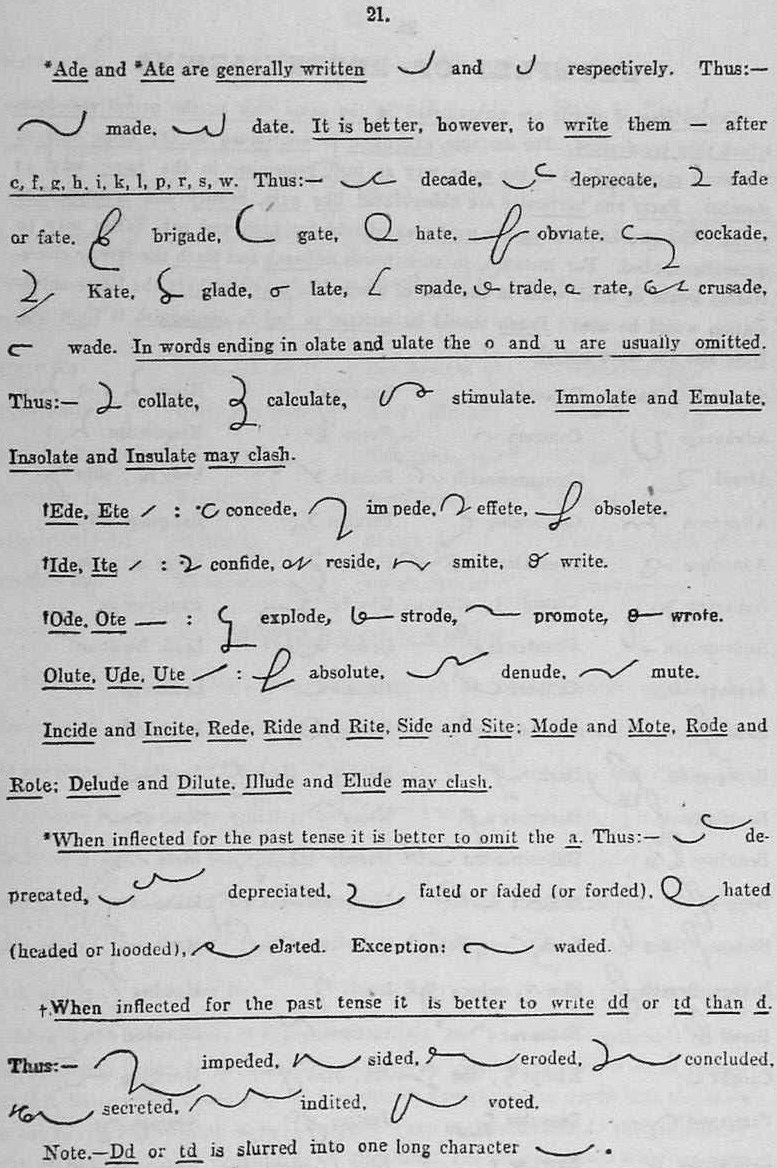 21.
*Ade and *Ate are generally written and respectively. Thus:—
made, date. It is better, however, to write them — after
c, f, g, h, i, k, l, p, r, s, w. Thus:— decade, deprecate, fade
or fate, brigade, gate, hate, obviate, cockade,
Kate, glade, late, spade, trade, rate, crusade,
wade. In words ending in olate and ulate the o and u are usually omitted.
Thus:— collate, calculate, stimulate. Immolate and Emulate,
Insolate and Insulate may clash.
†Ede, Ete : concede, impede, effete, obsolete.
†Ide, Ite : confide, reside, smite, write.
†Ode, Ote : explode, strode, promote, wrote.
Olute, Ude, Ute : absolute, denude, mute.
Incide and Incite, Rede, Ride and Rite, Side and Site; Mode and Mote, Rode and
Rote; Delude and Dilute, Illude and Elude may clash.
*When inflected for the past tense it is better to omit the a. Thus:— de-
precated, depreciated, fated or faded (or forded), hated
(headed or hooded), elated. Exception: waded.
†When inflected for the past tense it is better to write dd or td than d.
Thus:— impeded, sided, eroded, concluded,
secreted, indited, voted.
Note.—Dd or td is slurred into one long character .